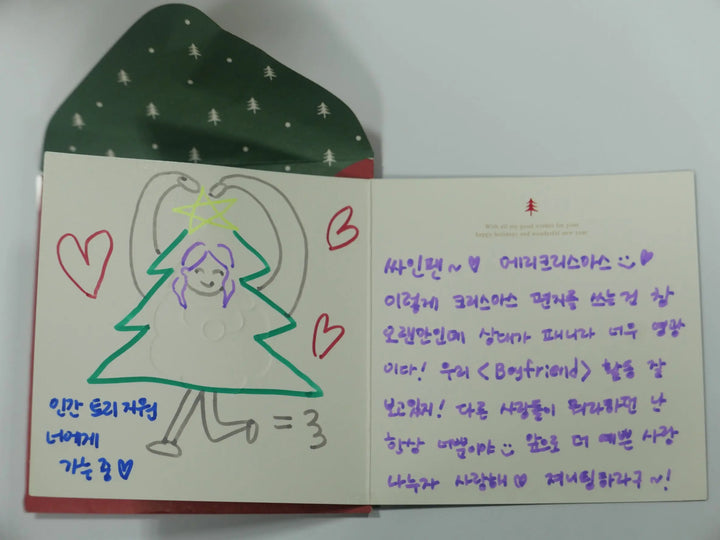 인간 트리 지원
너에게
가는 중♡
= 3
With all my good wishes for your
happy holidays and wonderful new year
싸인펜~♡ 메리크리스마스 ♡
이렇게 크리스마스 편지를 쓰는건 참
오랜만인데 상대가 패니라 너무 영광
이다! 우리 <Boyfriend> 활동 잘
보고있지! 다른 사람들이 뭐라하던 난
항상 너뿐이야 앞으로 더 예쁜 사랑
나누자 사랑해♡ 져니팅하라구~!